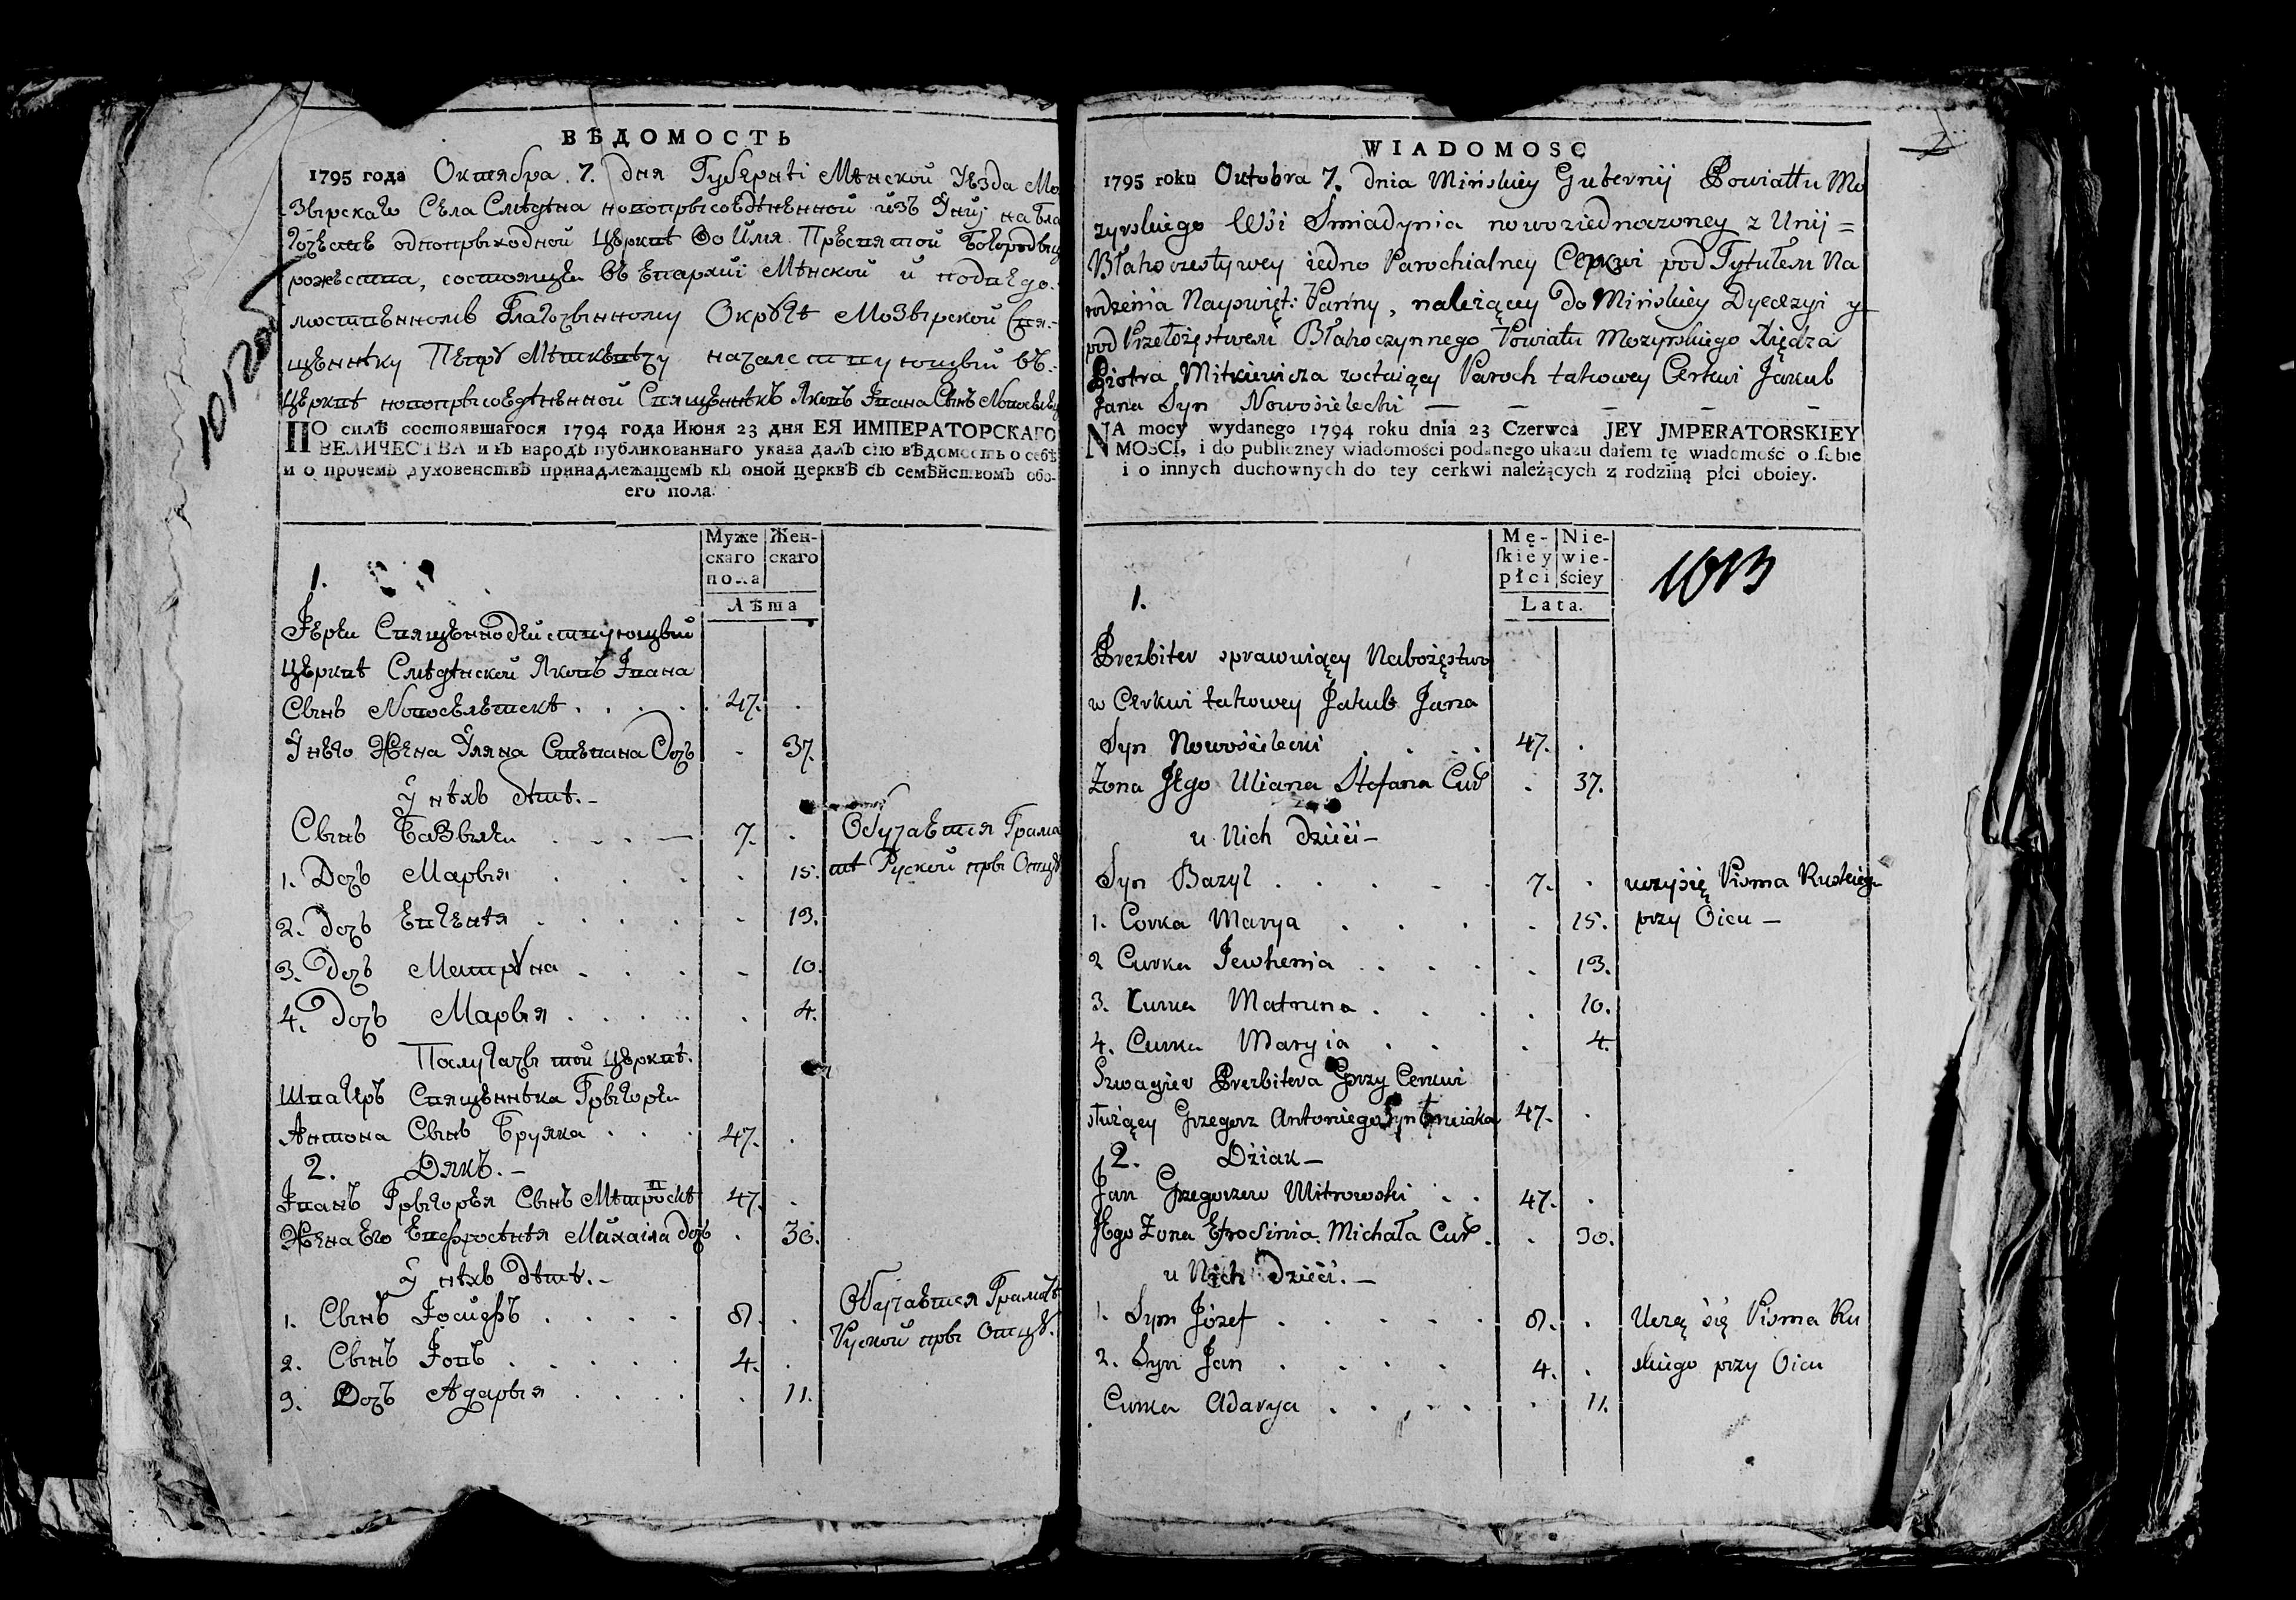 ВѢДОМОСТЬ
1795 года Октября 7. дня Губернѣи Мѣнской Уезда Мо
Зырскаго Села Смѣдѣна новопрысоединенной изъ Унiи на Бла
гочестие однопрыходной Церквѣ Во Имя Пресвятой Богородицы
рожества, состоящей въ Епархиi Мѣнской и подведо-
мственномъ Благочынному Округѣ Мозырской Свя-
щеннѣку Петру Мѣткевѣчу началствующый въ
Церквѣ новопрысоединенной Священнѣкъ Яковъ Iвана Сынъ Новоселец
ПО силѣ состоявшагося 1794 года Июня 23 дня ЕЯ ИМПЕРАТОРСКАГО
ВЕЛИЧЕСТВА и въ народъ публикованнаго указа далъ сiю вѣдомость о себѣ
и о прочемъ духовенствѣ принадлежащемъ къ оной церквѣ съ семѣйствомъ обо-
его пола.
Муже
скаго
пола
Жен-
скаго
Лѣта
1.
Iерей Священнодействующый
Церквѣ Смѣдѣнской Яковъ Iвана
Сынъ Новоселетскѣ . . . . 47.
У него Жена Уляна Степана Дочъ 37.
У нѣхъ дѣтѣ.-
Сынъ Базылѣ . . . — 7. Обучается Грама
1. Дочъ Марыя . . . 15. тѣ Руской пры Отцу
2. Дочъ Евгенѣя . . . 13.
3. Дочъ Метруна . . . 10.
4. Дочъ Марыя . . . 4.
Палугачы той церквѣ.
Швагѣръ Священнѣка Грыгорей
Антона Сынъ Бруяка . . . 47.
2. Дякъ.-
Iванъ Грыгорья Сынъ Мѣтровскѣ 47.
Жена Его Евфросѣнѣя Михаiла дочъ 30.
У нѣхъ дѣтѣ.-
1. Сынъ Iосифъ . . . . 8. Обучается Грамотѣ
2. Сынъ Iовъ . . . . 4. Руской пры Отцу.
3. Дочъ Адарыя . . . . 11.
WIADOMOSC
1795 roku Oktobra 7. dnia Mińskiey Gubernij Powiattu Mo
zyrskiego Wsi Smiadynia nowoziednoczoney z Unij =
Błahoczestywey iedno Parochialney Cerkwi pod Tytułem Na
rodzenia Nayswięt: Panny, należącey do Mińskiey Dyecezyi y
pod Przełożęstwem Błahoczynnego Powiatu Mozyrskiego Xiędza
Piotra Mitkiewicza zostaiący Paroch takowey Cerkwi Jakub
Jana Syn Nowosielecki — — — — —
NA mocy wydanego 1794 roku dnia 23 Czerwca JEY JMPERATORSKIEY
MOSCI, i do publiczney wiadomości podanego ukazu dałem tę wiadomość o sobie
i o innych duchownych do tey cerkwi należących z rodziną płci oboiey.
Mę-
skiey
płci
Nie-
wie-
ściey
Lata.
1013
1.
Prezbiter sprawuiący Nabożęstwo
w Cerkwi takowey Jakub Jana
Syn Nowosielecki . . . . 47.
Zona Jego Uliana Stefana Cur 37.
u Nich dzieci —
Syn Bazyl . . . . . 7. uczy się Pisma Ruskiego
1. Corka Marya . . . 15. przy Oicu —
2 Curka Jewhenia . . . 13.
3. Curka Matruna . . . 10.
4. Curka Maryia . . . 4.
Szwagier Prezbitera przy Cerkwi
służący Grzegorz Antoniego Syn Bruiaka 47.
2. Dziak —
Jan Grzegorzew Mitrowski . . 47.
Jego Zona Efrosinia Michała Cur. 30.
u Nich Dzieci. —
1. Syn Józef . . . . . 8. Uczą się Pisma Ru
2. Syn Jan . . . . 4. skiego przy Oicu
Curka Adarya . . . . . 11.